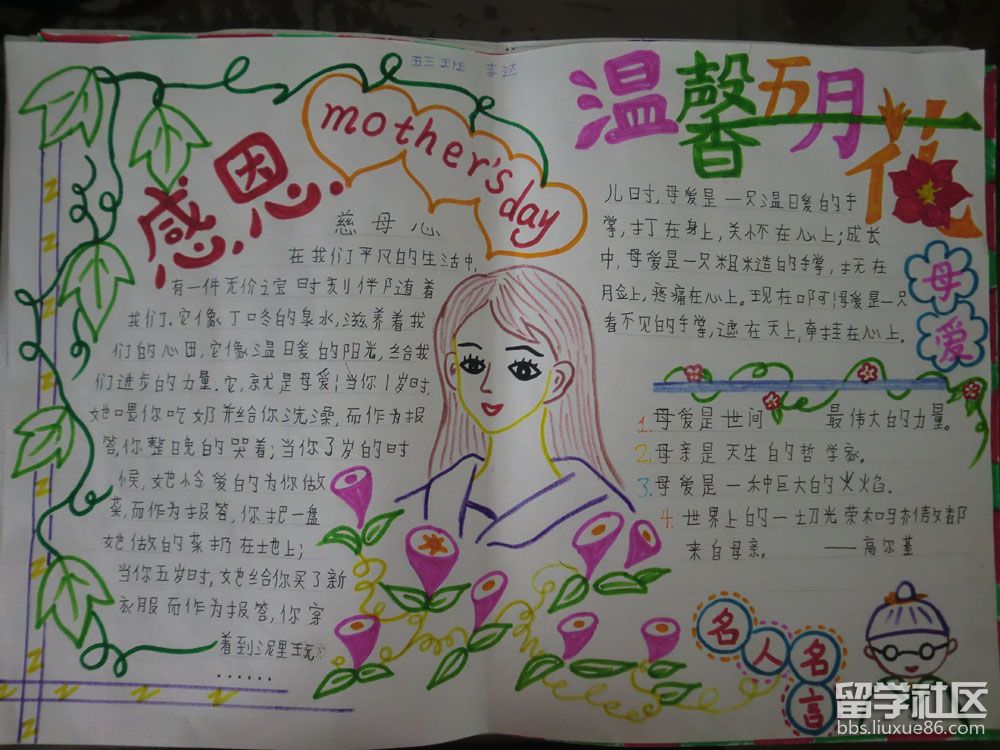 五三班 李达
感恩
mother's day
慈母心
在我们平凡的生活中,
有一件无价之宝时刻伴随着
我们.它像丁咚的泉水,滋养着我
们的心田,它像温暖的阳光,给我
们进步的力量.它,就是母爱!当你1岁时,
她喂你吃奶并给你洗澡,而作为报
答,你整晚的哭着;当你了岁的时
候,她怜爱的为你做
菜,而作为报答,你把一盘
她做的菜扔在地上;
当你五岁时,她给你买了新
衣服而作为报答,你穿
着到泥里玩
......
温馨五月花
儿时,母爱是一只温暖的手
掌,打在身上,关怀在心上;成长
中,母爱是一只粗糙的手掌,抚在
脸上,疼痛在心上。现在啊!母爱是一只
看不见的手掌,遮在天上,牵挂在心上。
母爱
1.母爱是世间 最伟大的力量。
2.母亲是天生的哲学家。
3.母爱是一种巨大的火焰.
4.世界上的一切光荣和骄傲都
来自母亲。 ——高尔基
名人名言
留学社区
bbs.liuxue86.com